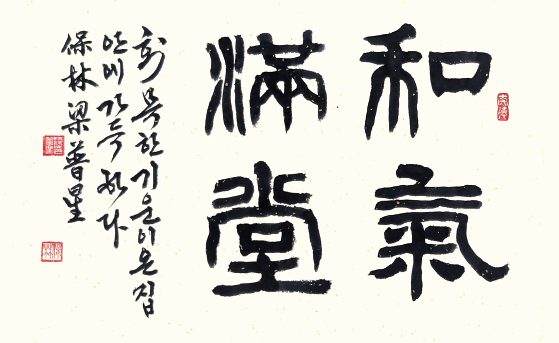 和氣
滿堂
화목한기운이온집
안에 가득하다
保林 梁普星